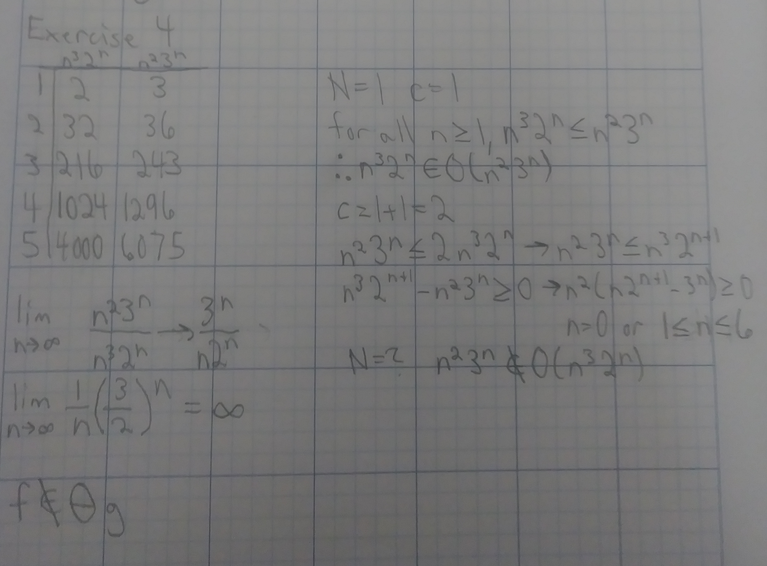 Exercise 4
n³2ⁿ n²3ⁿ
1 2 3
2 32 36
3 216 243
4 1024 1296
5 4000 6075
lim n→∞ n²3ⁿ/n³2ⁿ → 3ⁿ/n2ⁿ
lim n→∞ 1/n (3/2)ⁿ = ∞
f ∉ Θ g
N=1 c=1
for all n ≥ 1, n³2ⁿ ≤ n²3ⁿ
∴ n³2ⁿ ∈ O(n²3ⁿ)
c=1+1=2
n²3ⁿ ≤ 2n³2ⁿ → n²3ⁿ ≤ n³2ⁿ⁺¹
n³2ⁿ⁺¹ - n²3ⁿ ≥ 0 → n²(n2ⁿ⁺¹ - 3ⁿ) ≥ 0
n=0 or 1≤n≤6
N=? n²3ⁿ ∉ O(n³2ⁿ)